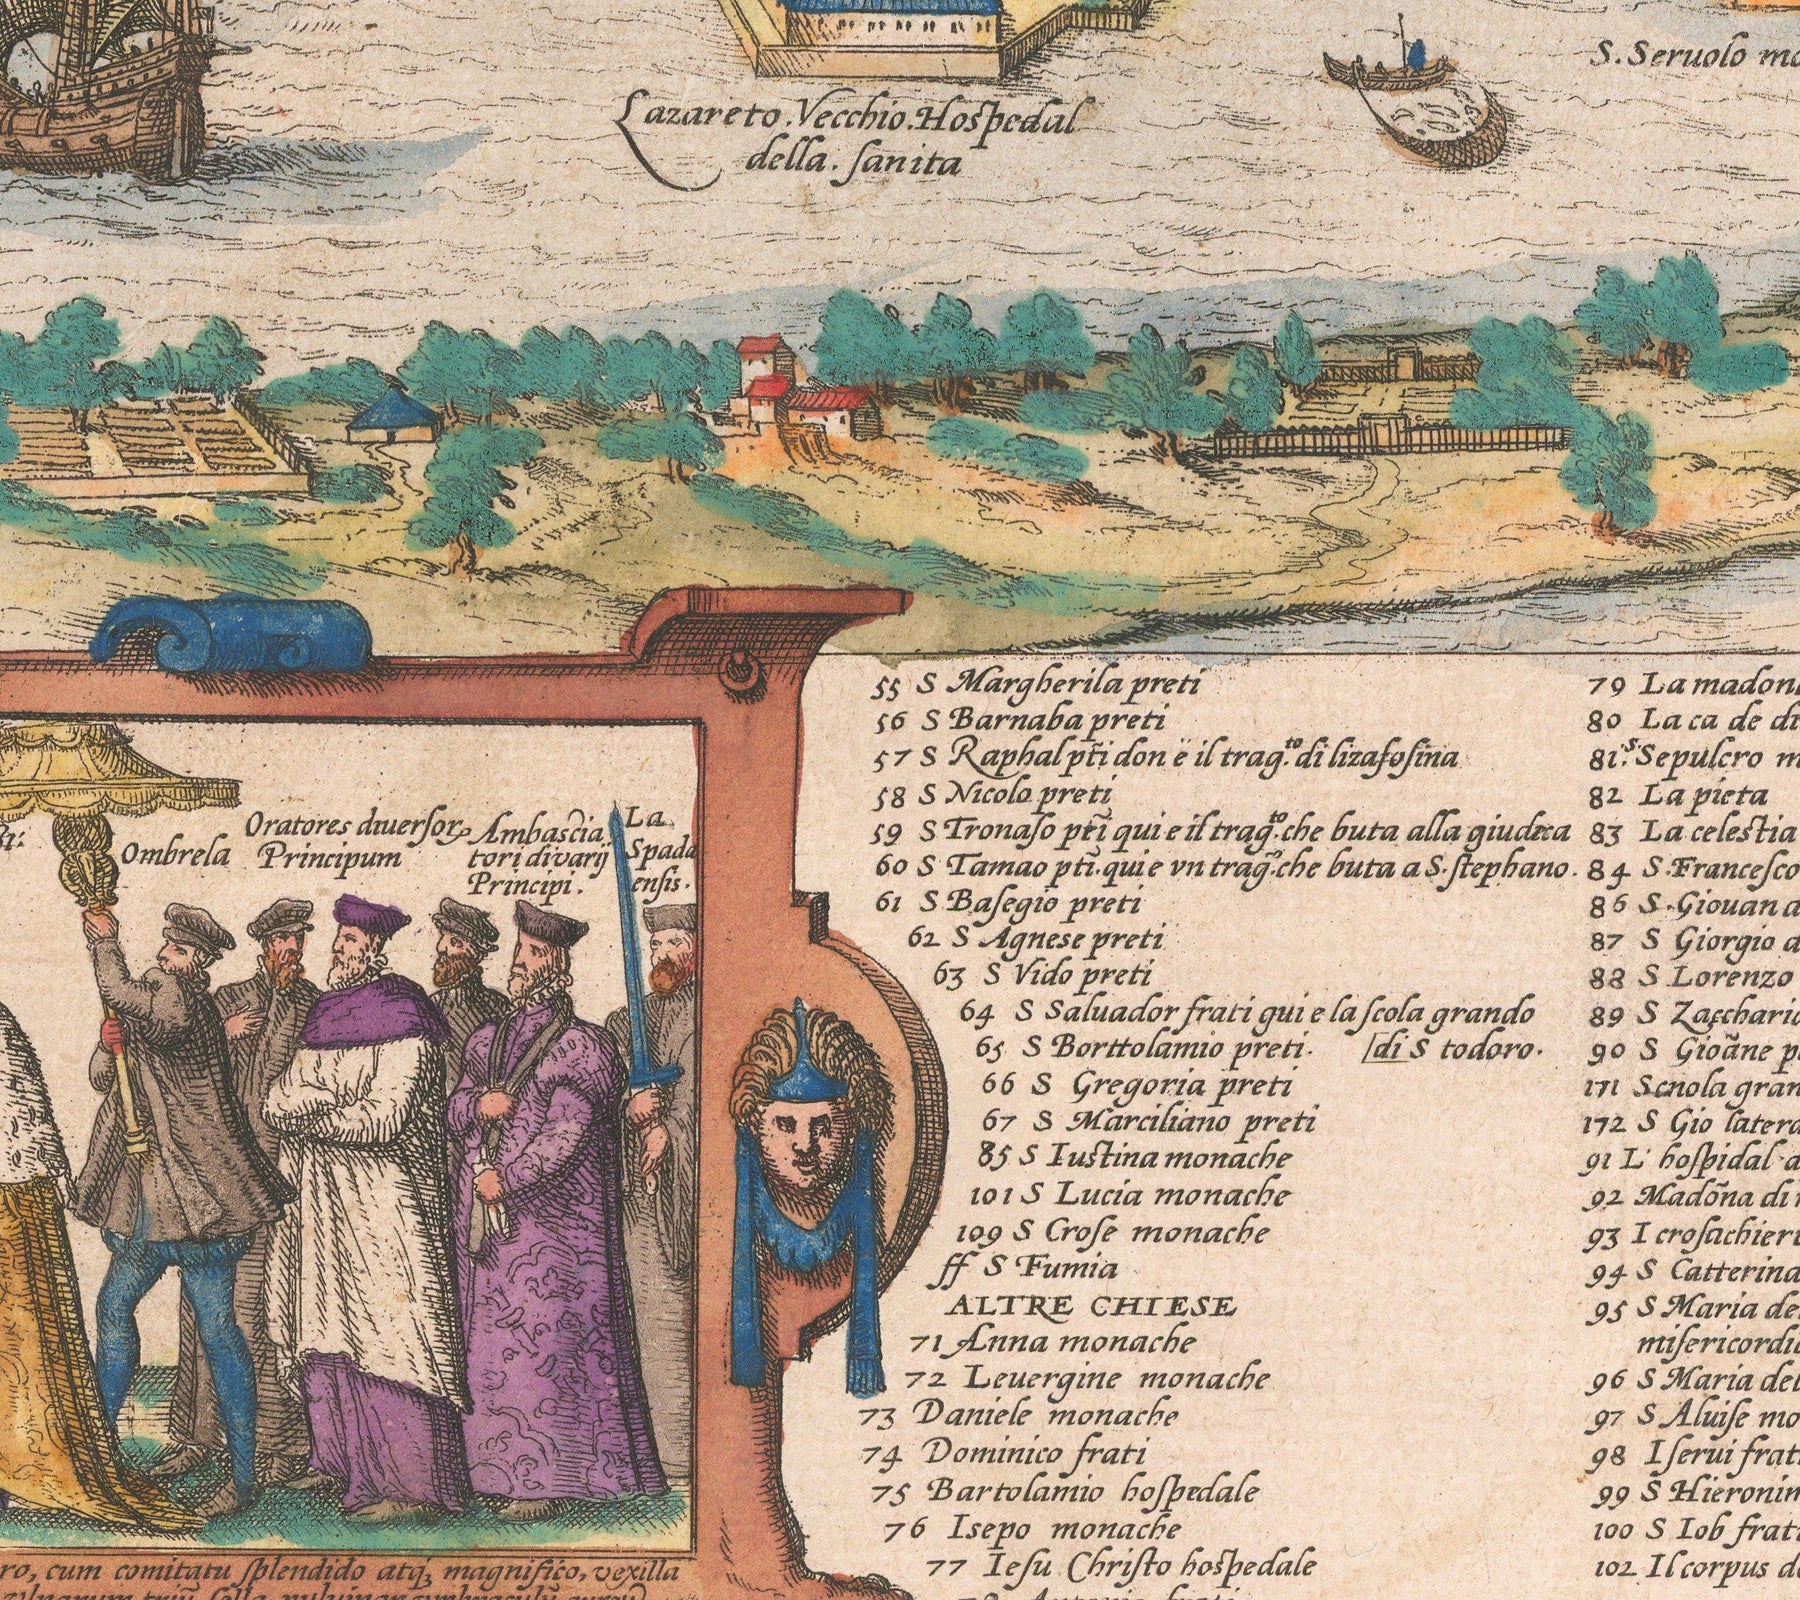 S. Seruolo
Lazareto. Vecchio. Hospedal
della. sanita
Ombrela
Oratores diuersor
Principum
Ambascia
tori di varij
Principi.
La
Spada
ensis.
ro, cum comitatu splendido atq, magnifico, vexilla
55 S Margherila preti
56 S Barnaba preti
57 S Raphal pti don e il trag.to di lizafosina
58 S Nicolo preti
59 S Tronaso pti qui e il trag.to che buta alla giudeca
60 S Tamao pti. qui e vn trag.o che buta a S. stephano.
61 S Basegio preti
62 S Agnese preti
63 S Vido preti
64 S Saluador frati qui e la scola grando
65 S Borttolamio preti. [di S todoro.
66 S Gregoria preti
67 S Marciliano preti
85 S Iustina monache
101 S Lucia monache
109 S Crose monache
ff S Fumia
ALTRE CHIESE
71 Anna monache
72 Leuergine monache
73 Daniele monache
74 Dominico frati
75 Bartolamio hospedale
76 Isepo monache
77 Iesu Christo hospedale
79 La madon
80 La ca de di
81 S. Sepulcro m
82 La pieta
83 La celestia
84 S. Francesco
86 S. Giouan a
87 S Giorgio d
88 S Lorenzo
89 S Zaccharia
90 S Gioãne p
171 Scnola gran
172 S Gio latera
91 L' hospidal a
92 Madõna di
93 I crosachieri
94 S Catterina
95 S Maria de
misericordi
96 S Maria del
97 S Aluise mo
98 I serui frati
99 S Hieronim
100 S Iob frati
102 Il corpus d